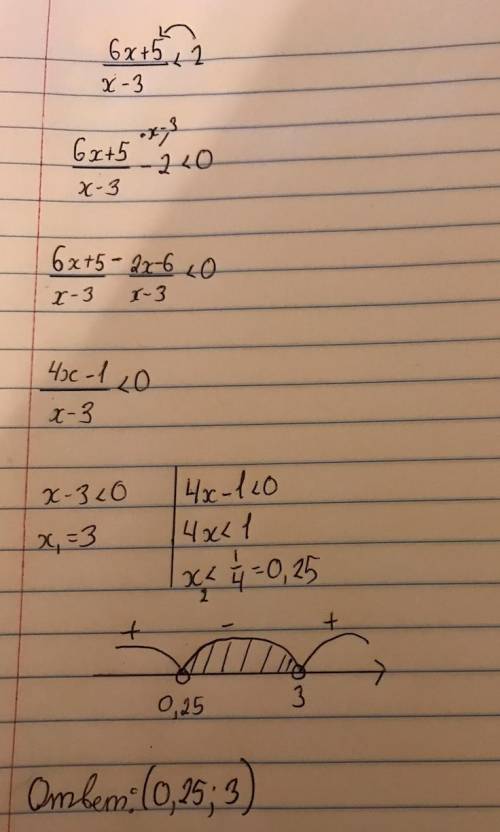 6x+5 < 2
x-3
·x-3
6x+5 - 2 < 0
x-3
6x+5 - 2x-6 < 0
x-3 x-3
4x-1 < 0
x-3
x-3<0 | 4x-1<0
x₁=3 | 4x<1
x₂< 1/4 =0,25
+ - +
0,25 3
Ответ: (0,25; 3)